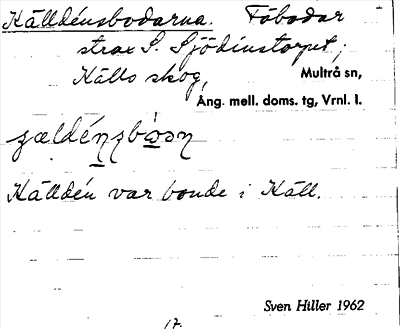 Källdénsbodarna. Fäbodar
strax S. Sjödinstorpet,
Källs skog, Multrå sn,
Ång. mell. doms. tg, Vrnl. l.
Källdén var bonde i Käll.
Sven Hiller 1962
17.